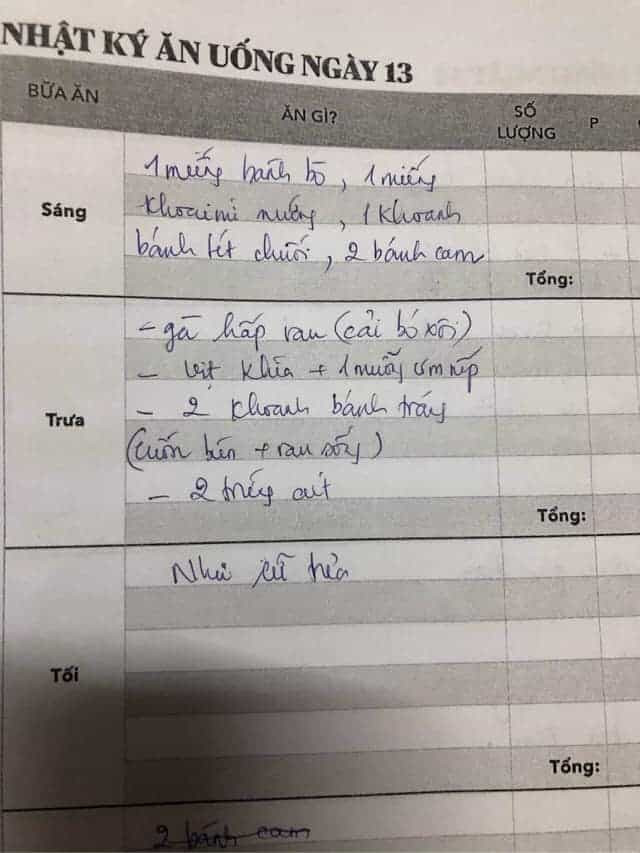 NHẬT KÝ ĂN UỐNG NGÀY 13
BỮA ĂN
ĂN GÌ?
SỐ LƯỢNG
P
Sáng
1 miếng bánh bò, 1 miếng
khoai mì nướng, 1 khoanh
bánh tét chuối, 2 bánh cam
Tổng:
Trưa
- gà hấp rau (cải bó xôi)
- vịt khìa + 1 muỗng cơm nếp
- 2 khoanh bánh tráng
(cuốn bún + rau sống)
- 2 trứng cút
Tổng:
Tối
Như cữ trưa
Tổng:
2 bánh cam